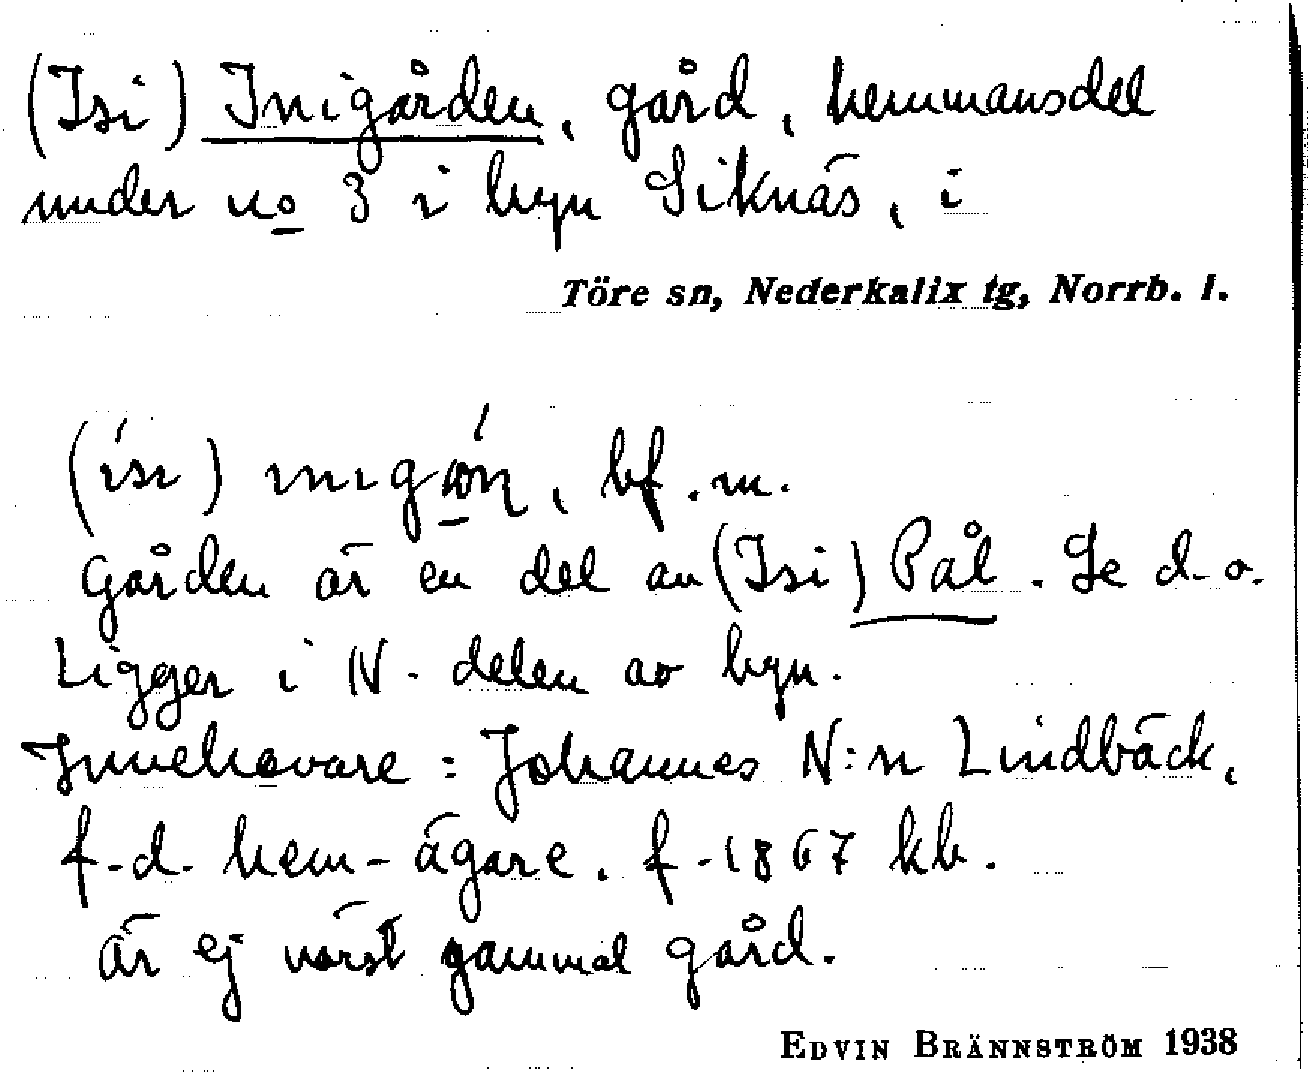 (Isi) Inigården, gård, hemmansdel
under no 3 i byn Siknäs, i
Töre sn, Nederkalix tg, Norrb. l.
(ísı) bf. m.
Gården är en del av (Isi) Pål. Se d.o.
Ligger i N. delen av byn.
Innehavare: Johannes N:n Lindbäck,
f.d. hem-ägare. f. 1867 kb.
är ej värst gammal gård.
EDVIN BRÄNNSTRÖM 1938